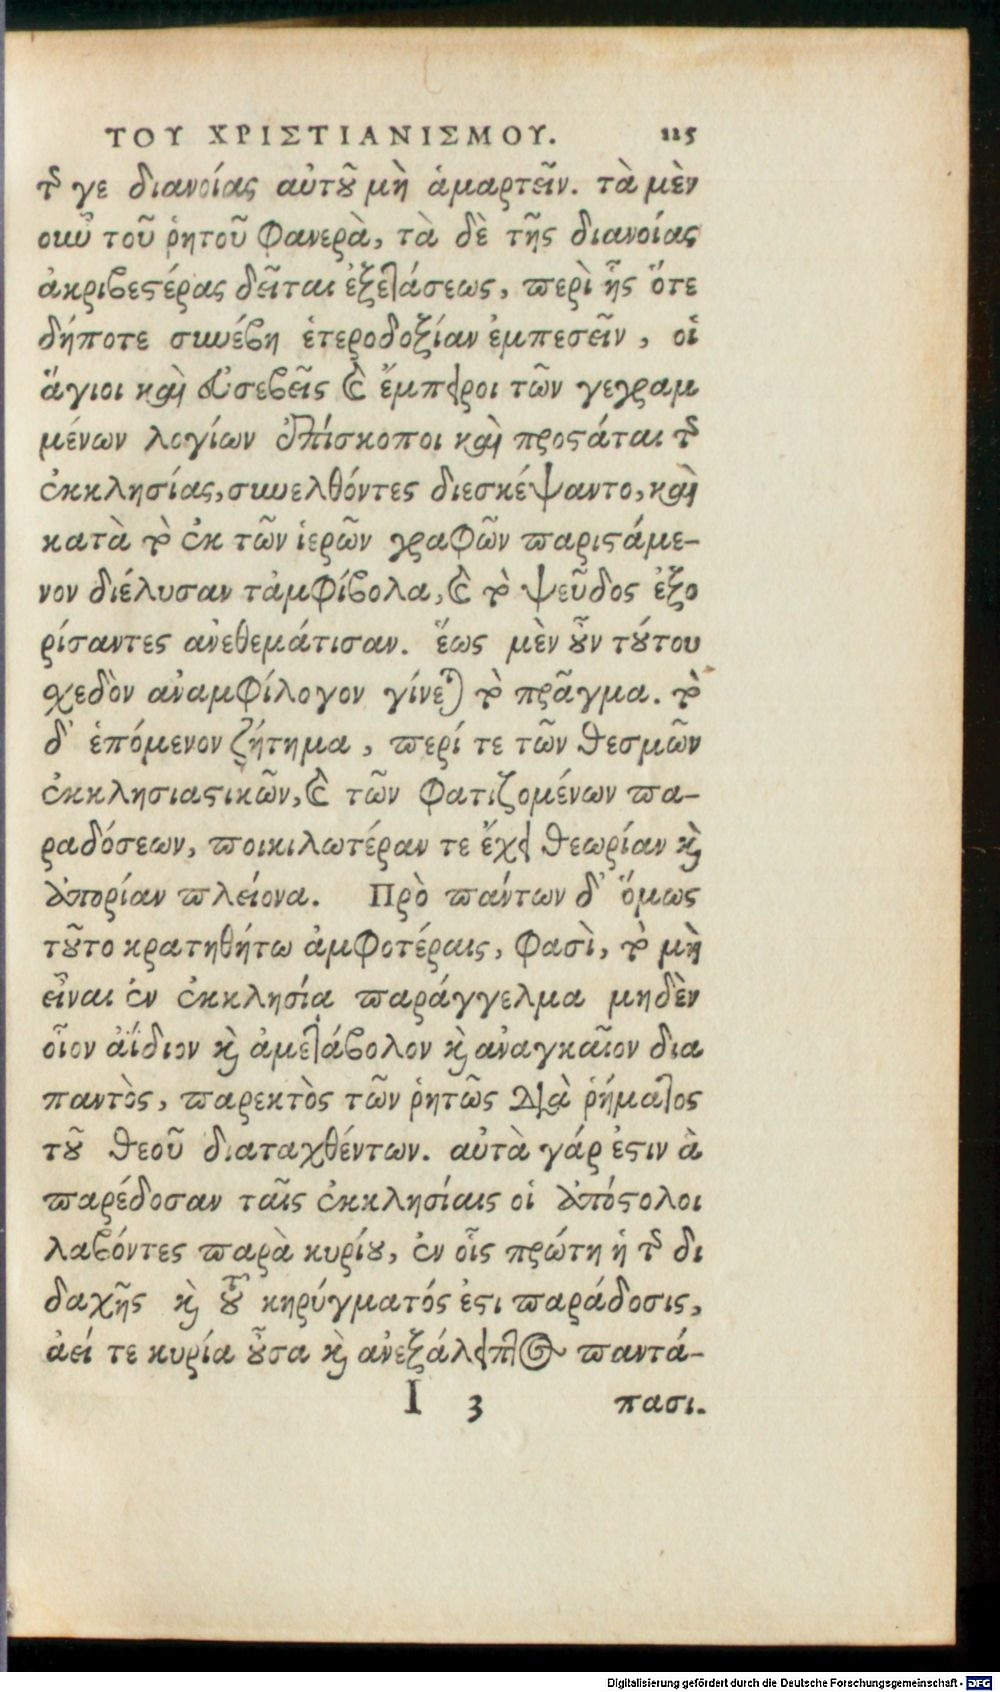 ΤΟΥ ΧΡΙΣΤΙΑΝΙΣΜΟΥ. 125
τῆς γε διανοίας αὐτοῦ μὴ ἁμαρτεῖν. τὰ μὲν
οὖν τοῦ ῥητοῦ φανερὰ, τὰ δὲ τῆς διανοίας
ἀκριβεστέρας δεῖται ἐξετάσεως, περὶ ἧς ὅτε
δήποτε συνέβη ἑτεροδοξίαν ἐμπεσεῖν, οἱ
ἅγιοι καὶ εὐσεβεῖς καὶ ἔμπειροι τῶν γεγραμ
μένων λογίων ἐπίσκοποι καὶ προστάται τῆς
ἐκκλησίας, συνελθόντες διεσκέψαντο, καὶ
κατὰ τὸ ἐκ τῶν ἱερῶν γραφῶν παριστάμε-
νον διέλυσαν τἀμφίβολα, καὶ τὸ ψεῦδος ἐξο
ρίσαντες ἀνεθεμάτισαν. ἕως μὲν οὖν τούτου
σχεδὸν ἀναμφίλογον γίνεται τὸ πρᾶγμα. τὸ
δ' ἑπόμενον ζήτημα, περί τε τῶν θεσμῶν
ἐκκλησιαστικῶν, καὶ τῶν φατιζομένων πα-
ραδόσεων, ποικιλωτέραν τε ἔχει θεωρίαν καὶ
ἀπορίαν πλείονα. Πρὸ πάντων δ' ὅμως
τοῦτο κρατηθήτω ἀμφοτέραις, φασὶ, τὸ μὴ
εἶναι ἐν ἐκκλησίᾳ παράγγελμα μηδὲν
οἷον ἀΐδιον καὶ ἀμετάβολον καὶ ἀναγκαῖον δια
παντὸς, παρεκτὸς τῶν ῥητῶς διὰ ῥήματος
τοῦ θεοῦ διαταχθέντων. αὐτὰ γάρ ἐστιν ἃ
παρέδοσαν ταῖς ἐκκλησίαις οἱ ἀπόστολοι
λαβόντες παρὰ κυρίου, ἐν οἷς πρώτη ἡ τῆς δι
δαχῆς καὶ τοῦ κηρύγματός ἐστι παράδοσις,
ἀεί τε κυρία οὖσα καὶ ἀνεξάλειπτος παντά-
I 3 πασι.
Digitalisierung gefördert durch die Deutsche Forschungsgemeinschaft - DFG